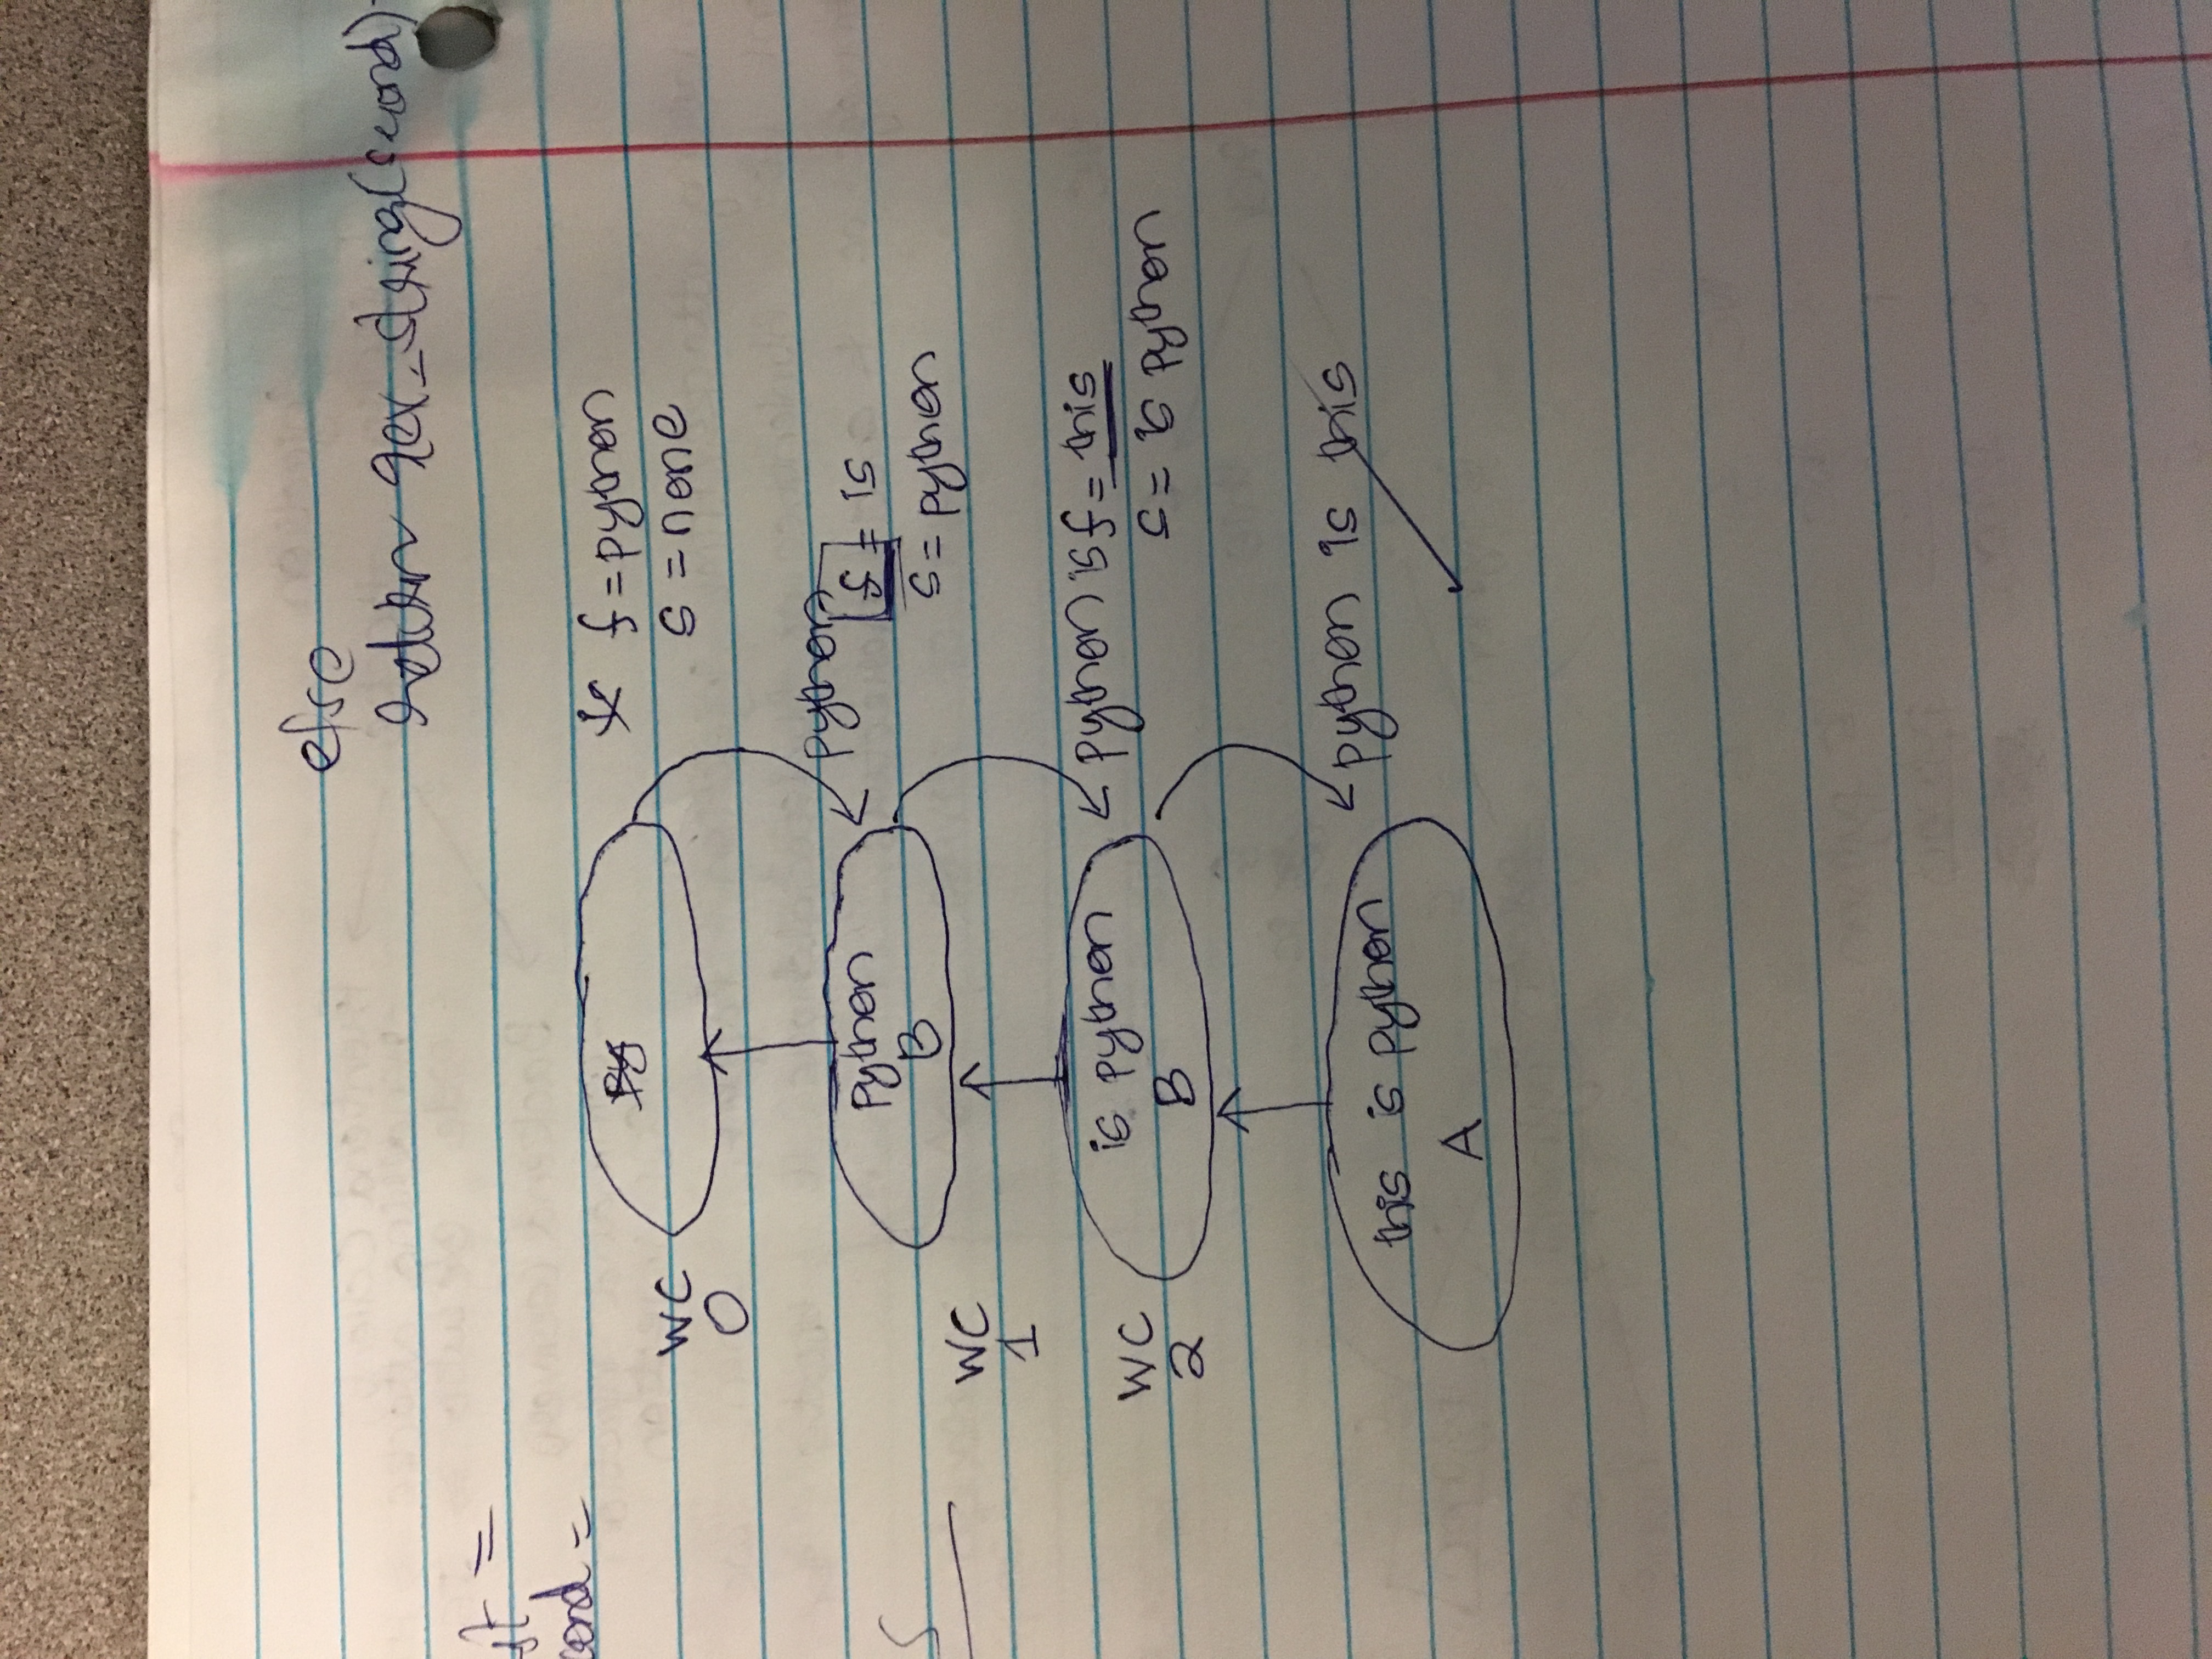 else
return rev_string(second)
st =
cond =
py
* f = python
s = none
WC
0
python
python
B
f = is
s = python
S
WC
1
is python
B
python is f = this
s = is python
WC
2
this is python
A
python is this